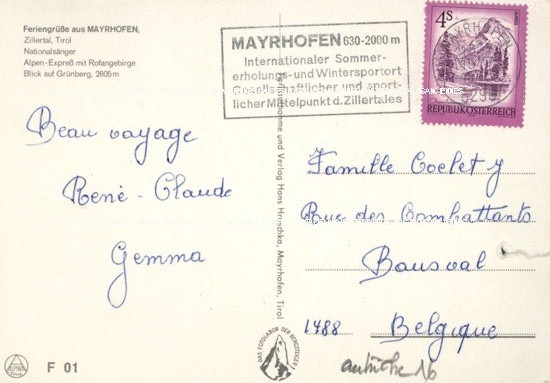 Feriengrüße aus MAYRHOFEN,
Zillertal, Tirol
Nationalsänger
Alpen-Expreß mit Rofangebirge
Blick auf Grünberg, 2805 m
MAYRHOFEN 630-2000 m
Internationaler Sommer-
erholungs- und Wintersportort
gesellschaftlicher und sport-
licher Mittelpunkt d. Zillertales
4S
REPUBLIK ÖSTERREICH
MAYRHOFEN
Beau voyage
René - Claude
Gemma
Famille Coelet y
Rue des Combattants
Bousval
1488 Belgique
Aufnahme und Verlag Hans Hruschka, Mayrhofen, Tirol
DAS FOTOLABOR DER BERGSTEIGER
F 01
autriche 16